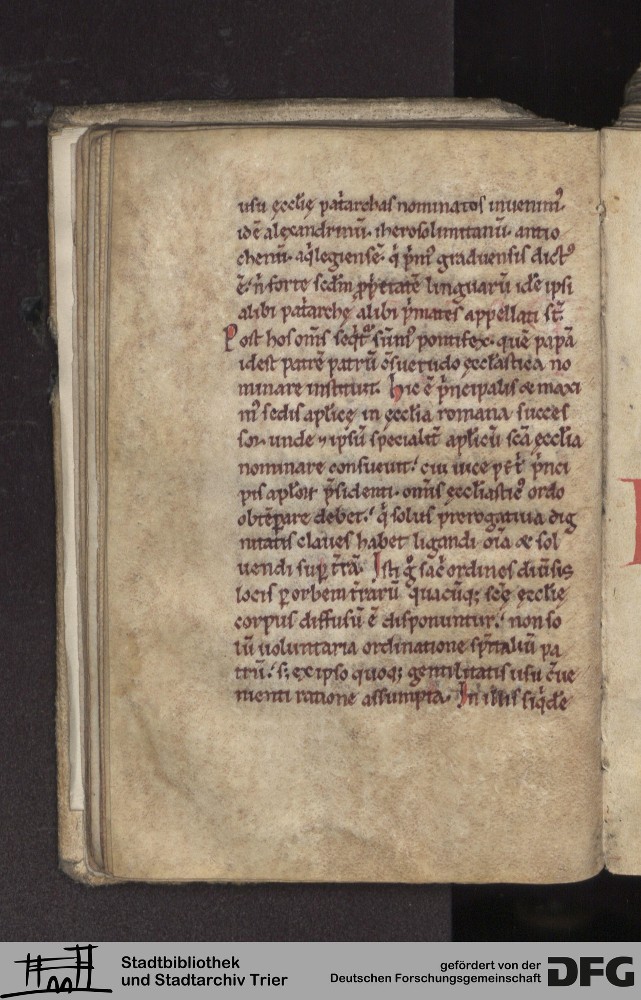 usu ęcclię pat̾archas nominatos inuenim᷒.
id ē alexandrinū. iherosolimitanū. antio
chenū. aq̇legiensē. q̇ p̾m᷒ graduensis dict᷒
ē. n̄ forte scd̄m p̱p̾etatē linguarū idē ipsi
alibi pat̾archę alibi p̾mates appellati st̄.
Post hos om̄s seq̇t᷒ sūm᷒ pontifex. quē papā
idest patrē patrū ↄ̄suetudo ęcclāstica no
minare instituit. Hic ē p̾ncipalis & maxi
m᷒ sedis aplicę in ęcclia romana succes
sor. unde ⁊ ipsū specialit̄ aplicū scā ęcclia
nominare consueuit. cui uice petri p̾nci
pis aplor̄ p̾sidenti. om̄is ęccliastic᷒ ordo
obtēꝑare debet. q̇ solus p̾rerogatiua dig
nitatis claues habet ligandi om̄ia & sol
uendi suꝑ t̄rā. Isti g̊ sac̾ ordines diūsis
locis ꝑ orbem t̄rarū quacūq; scę ęcclię
corpus diffusū ē disponuntur. non so
lū uoluntaria ordinatione sp̄italiū pa
trū. s; ex ipso quoq; gentilitatis usu ↄ̄ue
nienti ratione assumpta. In illis siq̇dē
Stadtbibliothek
und Stadtarchiv Trier
gefördert von der
Deutschen Forschungsgemeinschaft
DFG